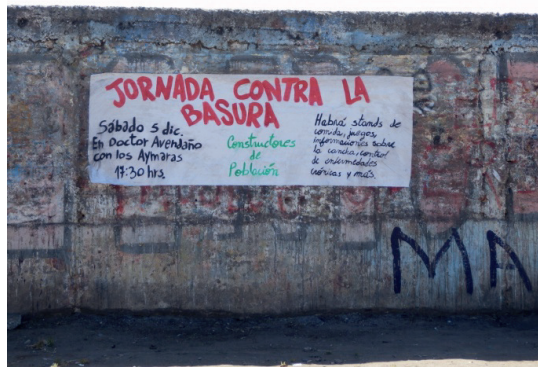 JORNADA CONTRA LA
BASURA
Sábado 5 dic.
En Doctor Avendaño
con los Aymaras
17:30 hrs.
Constructores
de
Población
Habrá stands de
comida, juegos,
informaciones sobre
la cancha, control
de enfermedades
crónicas y más.
MA